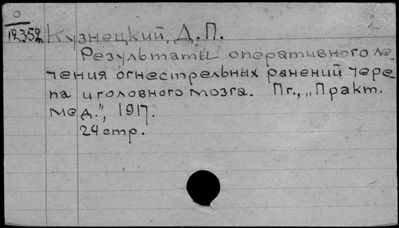 0
12352
Кузнецкий, Д.П.
2
Результаты оперативного ле-
чения огнестрельных ранений чере
па и головного мозга. Пг., „Практ.
мед.", 1917.
24 стр.